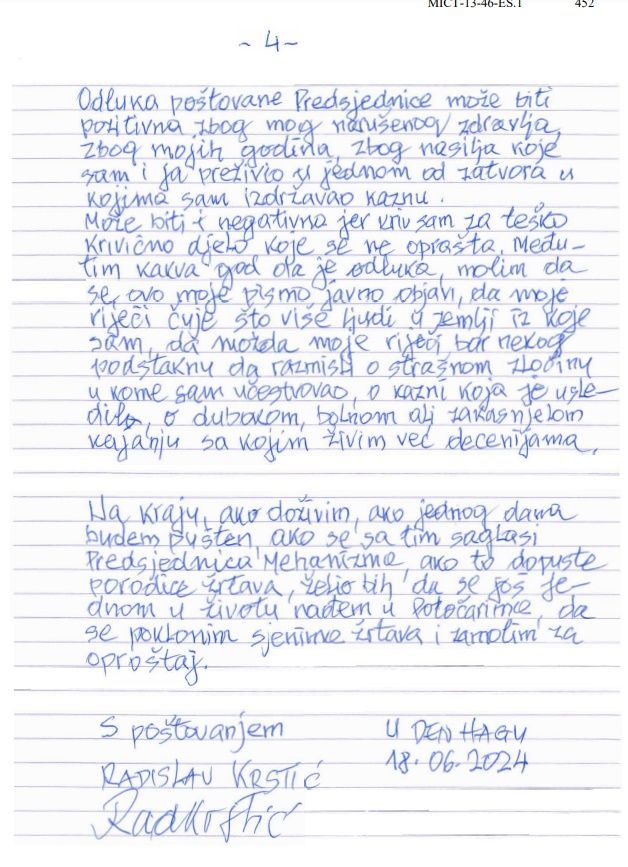 MICT-13-46-ES.1 452
~ 4 ~
Odluka poštovane Predsjednice može biti
pozitivna zbog mog narušenog zdravlja,
zbog mojih godina, zbog nasilja koje
sam i ja preživio u jednom od zatvora u
kojima sam izdržavao kaznu.
Može biti i negativna jer kriv sam za teško
krivično djelo koje se ne oprašta. Među-
tim kakva god da je odluka, molim da
se ovo moje pismo javno objavi, da moje
riječi čuje što više ljudi u zemlji iz koje
sam, da možda moje riječi bar nekog
podstaknu da razmisli o strašnom zločinu
u kome sam učestvovao, o kazni koja je usle-
dila, o dubokom, bolnom ali zakasnjelom
kajanju sa kojim živim već decenijama.
Na kraju, ako doživim, ako jednog dana
budem pušten, ako se sa tim saglasi
Predsjednica Mehanizma, ako to dopuste
porodice žrtava, želio bih da se još je-
dnom u životu nađem u Potočarima, da
se poklonim sjenima žrtava i zamolim za
oproštaj.
S poštovanjem U DEN HAGU
RADISLAV KRSTIĆ 18.06.2024
RadKrstić